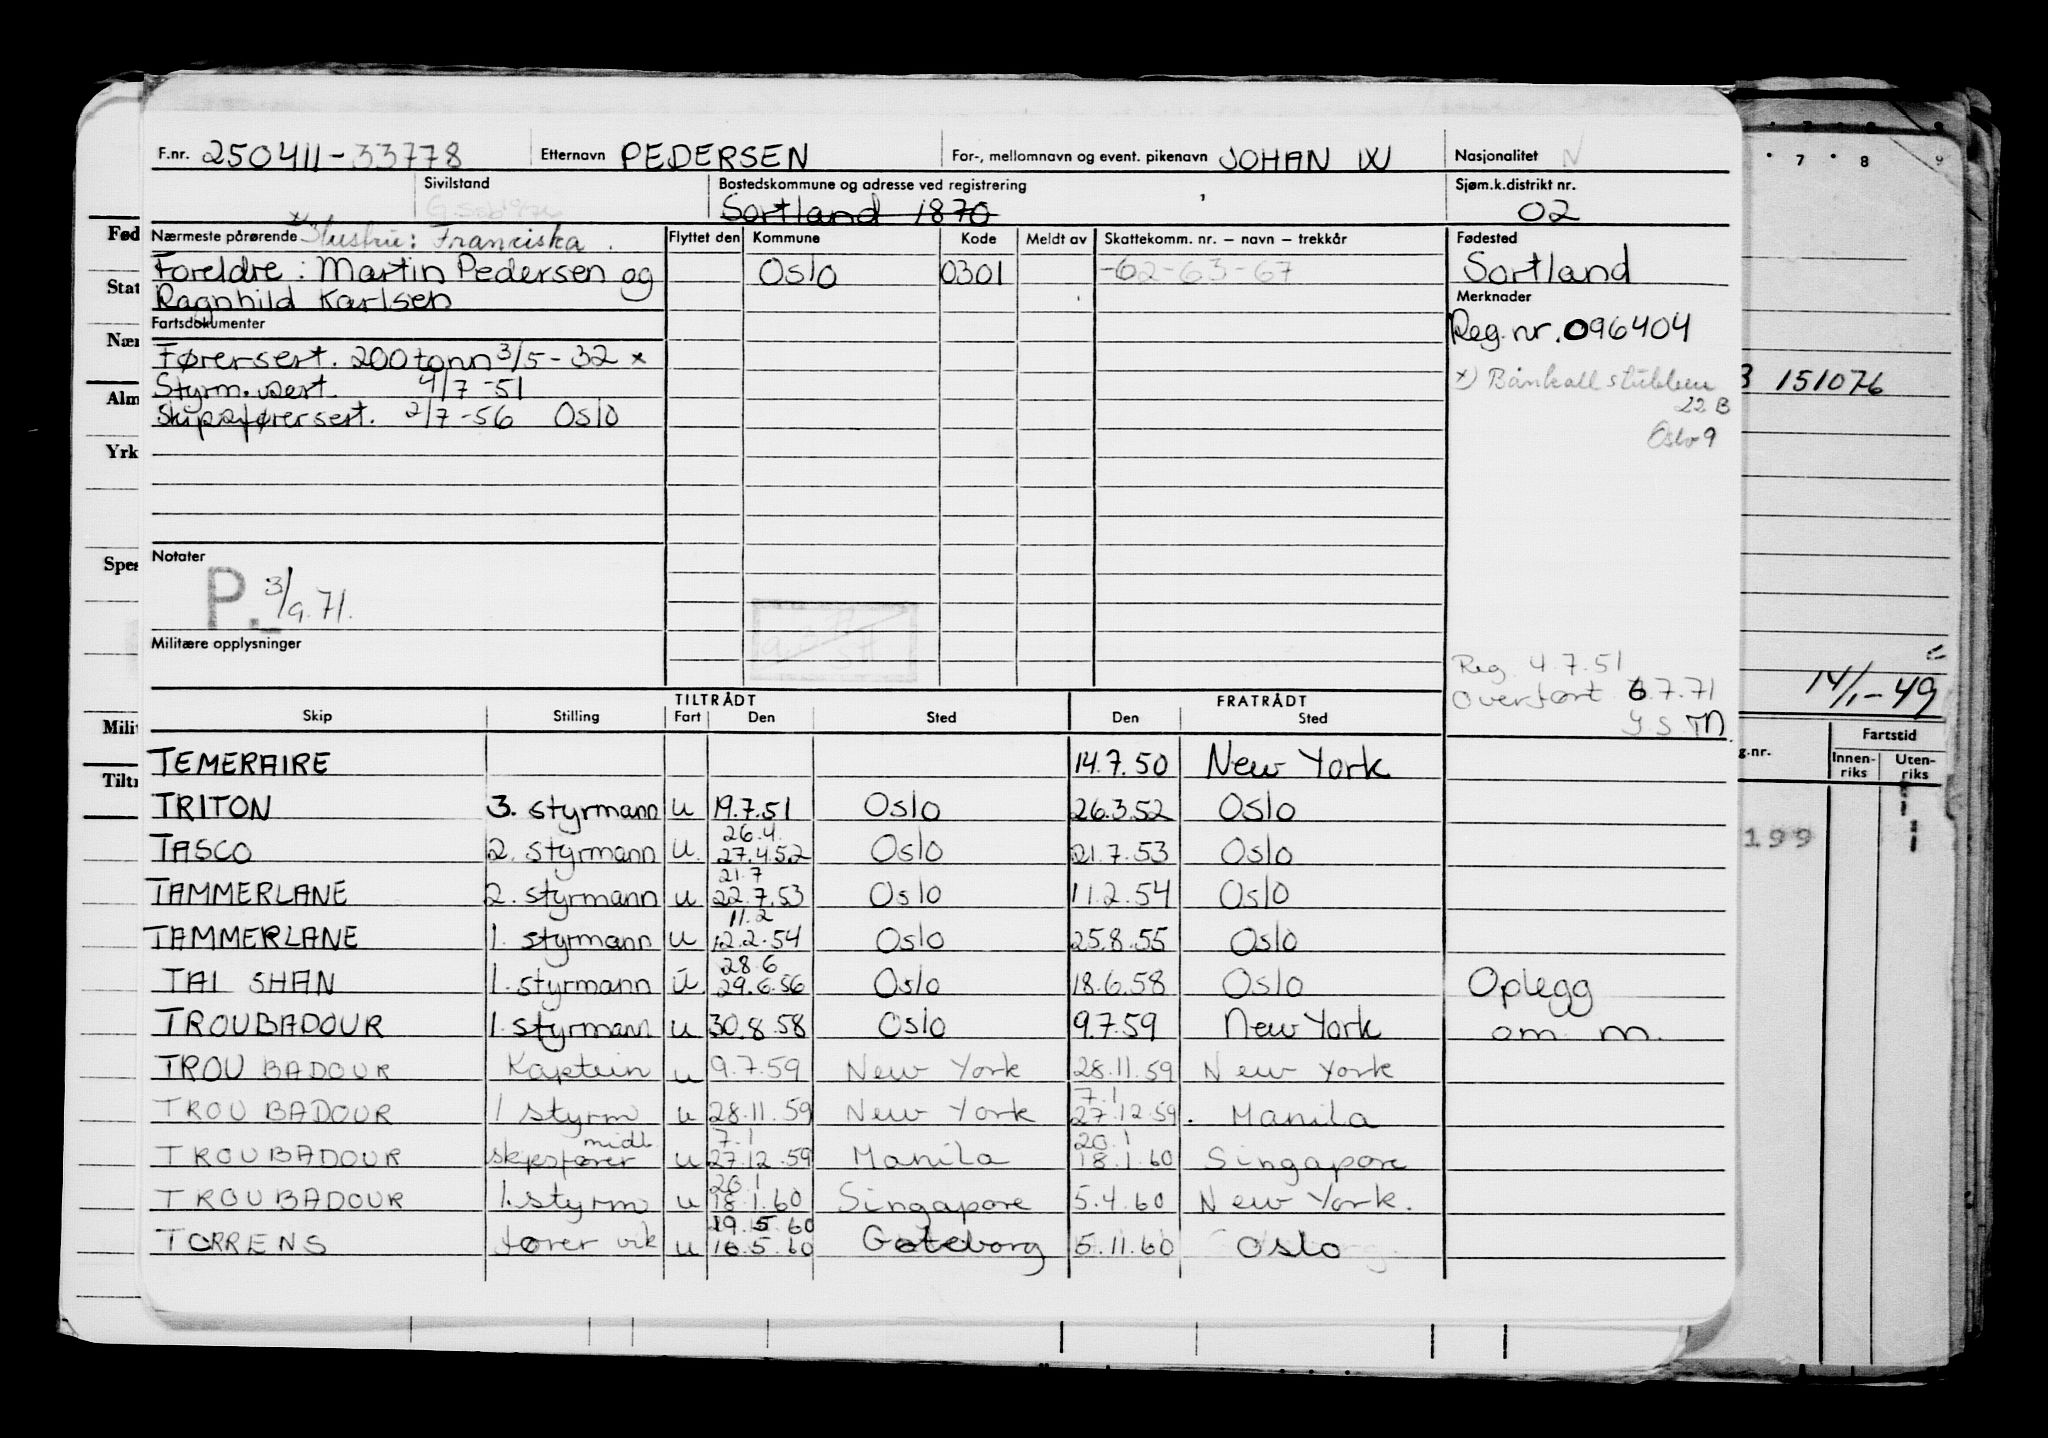 F.nr. 250411-33778 Etternavn PEDERSEN For-, mellomnavn og event. pikenavn JOHAN W Nasjonalitet N
Sivilstand Bostedskommune og adresse ved registrering Sjøm.k.distrikt nr.
G Sortland 1870 02
Nærmeste pårørende x) Hustru: Franciska. Flyttet den Kommune Kode Meldt av Skattekomm. nr. – navn – trekkår Fødested
Foreldre: Martin Pedersen og Oslo 0301 -62-63-67 Sortland
Ragnhild Karlsen Merknader
Fartsdokumenter Reg.nr. 096404
Førersert. 200 tonn 3/5-32 x
Styrm.sert. 4/7-51 x) Bånkallstubben
22 B
Skipsførersert. 2/7-56 Oslo
Oslo 9
Notater
P. 3/9.71.
Militære opplysninger
Reg. 4.7.51
Overført 6.7.71
TILTRÅDT FRATRÅDT
Skip Stilling Fart Den Sted Den Sted
TEMERAIRE 14.7.50 New York
TRITON 3. styrmann u 19.7.51 Oslo 26.3.52 Oslo
26.4.
TASCO 2. styrmann u. 27.4.52 Oslo 21.7.53 Oslo
21.7
TAMMERLANE 2. styrmann u 22.7.53 Oslo 11.2.54 Oslo
11.2
TAMMERLANE 1. styrmann u 12.2.54 Oslo 25.8.55 Oslo
28.6
TAI SHAN 1. styrmann u 29.6.56 Oslo 18.6.58 Oslo Oplegg
TROUBADOUR 1. styrmann u 30.8.58 Oslo 9.7.59 New York om m.
TROUBADOUR Kaptein u 9.7.59 New York 28.11.59 New York
7.1
TROUBADOUR 1 styrm u 28.11.59 New York 27.12.59. Manila
midl 7.1 20.1
TROUBADOUR skipsfører u 27.12.59 Manila 18.1.60 Singapore
20.1
TROUBADOUR 1. styrm u 18.1.60 Singapore 5.4.60 New York.
19.5.60
TORRENS fører vik u 16.5.60 Gøteborg 5.11.60 Oslo
Fød
Stat
Nær
Alm
Yrk
Spes
Milit
Tiltr
7 8 9
151076
14/1-49
g.nr. Fartstid
Innen-riks Uten-riks
199